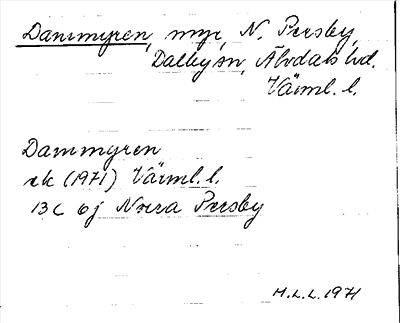 Dammyren, myr, N. Persby,
Dalby sn, Älvdals hd.
Värml. l.
Dammyren
ek (1971) Värml. l.
13C 6j Norra Persby
M.L.L. 1971